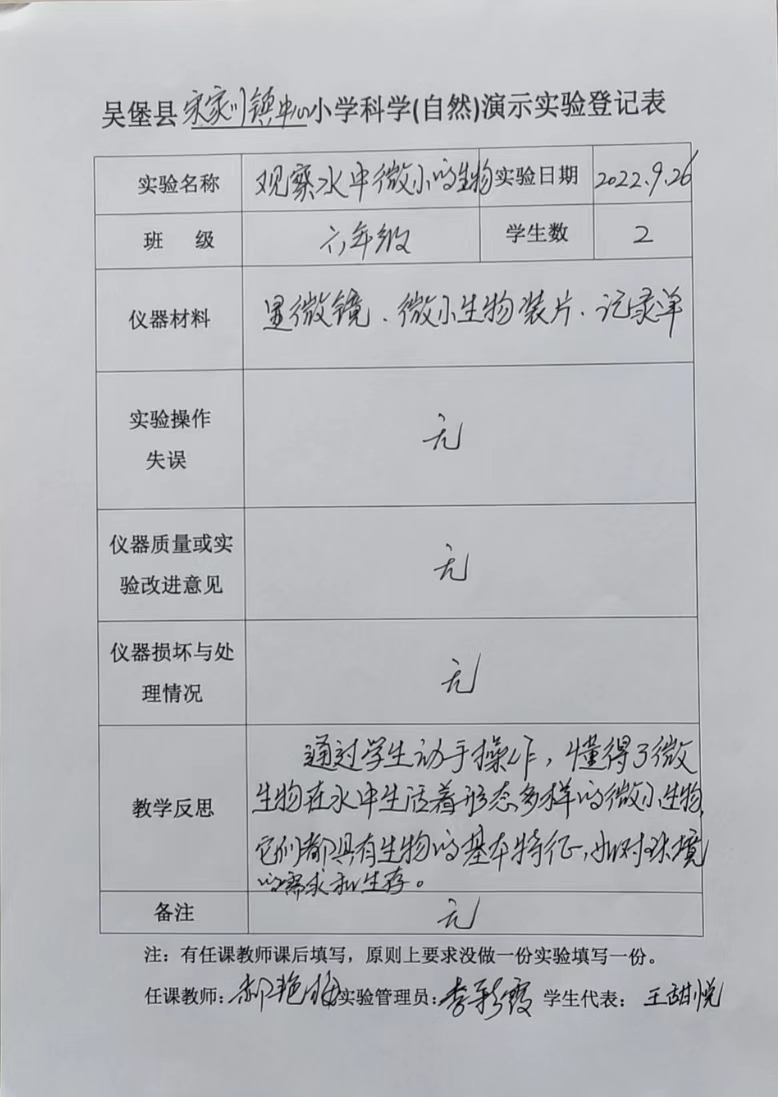 吴堡县宋家川镇中心小学科学(自然)演示实验登记表
实验名称 观察水中微小的生物 实验日期 2022.9.26
班 级 六年级 学生数 2
仪器材料 显微镜、微小生物装片、记录单
实验操作
失误 无
仪器质量或实
验改进意见 无
仪器损坏与处
理情况 无
教学反思
通过学生动手操作，懂得了微
生物在水中生活着形态多样的微小生物，
它们都具有生物的基本特征，如对环境
的需求和生存。
备注 无
注：有任课教师课后填写，原则上要求没做一份实验填写一份。
任课教师：郝艳梅 实验管理员：李彩霞 学生代表：王甜悦